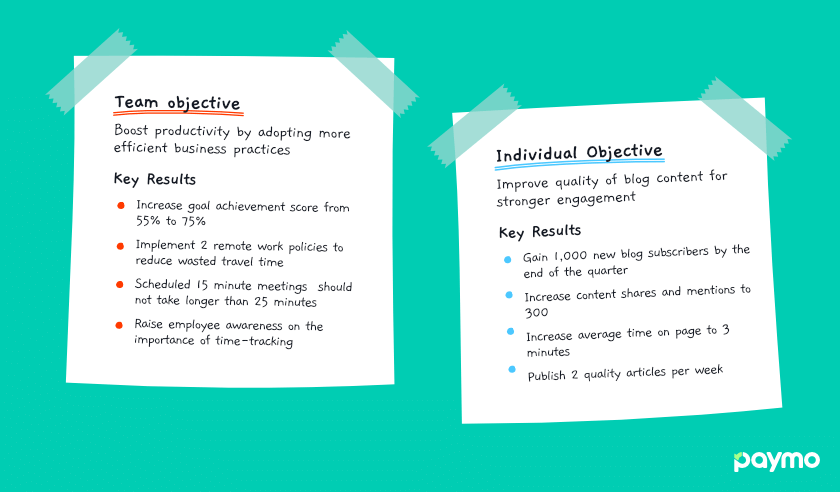 Team objective
Boost productivity by adopting more
efficient business practices
Key Results
Increase goal achievement score from
55% to 75%
Implement 2 remote work policies to
reduce wasted travel time
Scheduled 15 minute meetings should
not take longer than 25 minutes
Raise employee awareness on the
importance of time-tracking
Individual Objective
Improve quality of blog content for
stronger engagement
Key Results
Gain 1,000 new blog subscribers by the
end of the quarter
Increase content shares and mentions to
300
Increase average time on page to 3
minutes
Publish 2 quality articles per week
paymo